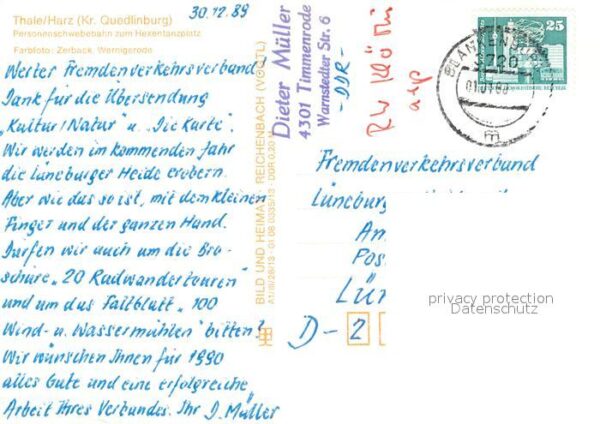 Thale/Harz (Kr. Quedlinburg)
Personenschwebebahn zum Hexentanzplatz
Farbfoto: Zerback, Wernigerode
30.12.89
Werter Fremdenverkehrsverband
Dank für die Übersendung
„Kultur/Natur" u. „Die Karte".
Wir werden im kommenden Jahr
die Lüneburger Heide erobern.
Aber wie das so ist, mit dem kleinen
Finger und der ganzen Hand.
Dürfen wir auch um die Bro-
schüre „20 Radwandertouren"
und um das Faltblatt „100
Wind- u. Wassermühlen" bitten?
Wir wünschen Ihnen für 1990
alles Gute und eine erfolgreiche
Arbeit Ihres Verbandes. Ihr D. Müller
BILD UND HEIMAT REICHENBACH (VOGTL)
A1/III/26/13 01 08 0335/13 DDR 0,20
Dieter Müller
4301 Timmenrode
Warnstedter Str. 6
-DDR-
BLANKENBURG
3720
m
25
Fremdenverkehrsverband
Lüneburg
An
Pos
Lün
D-2
privacy protection
Datenschutz